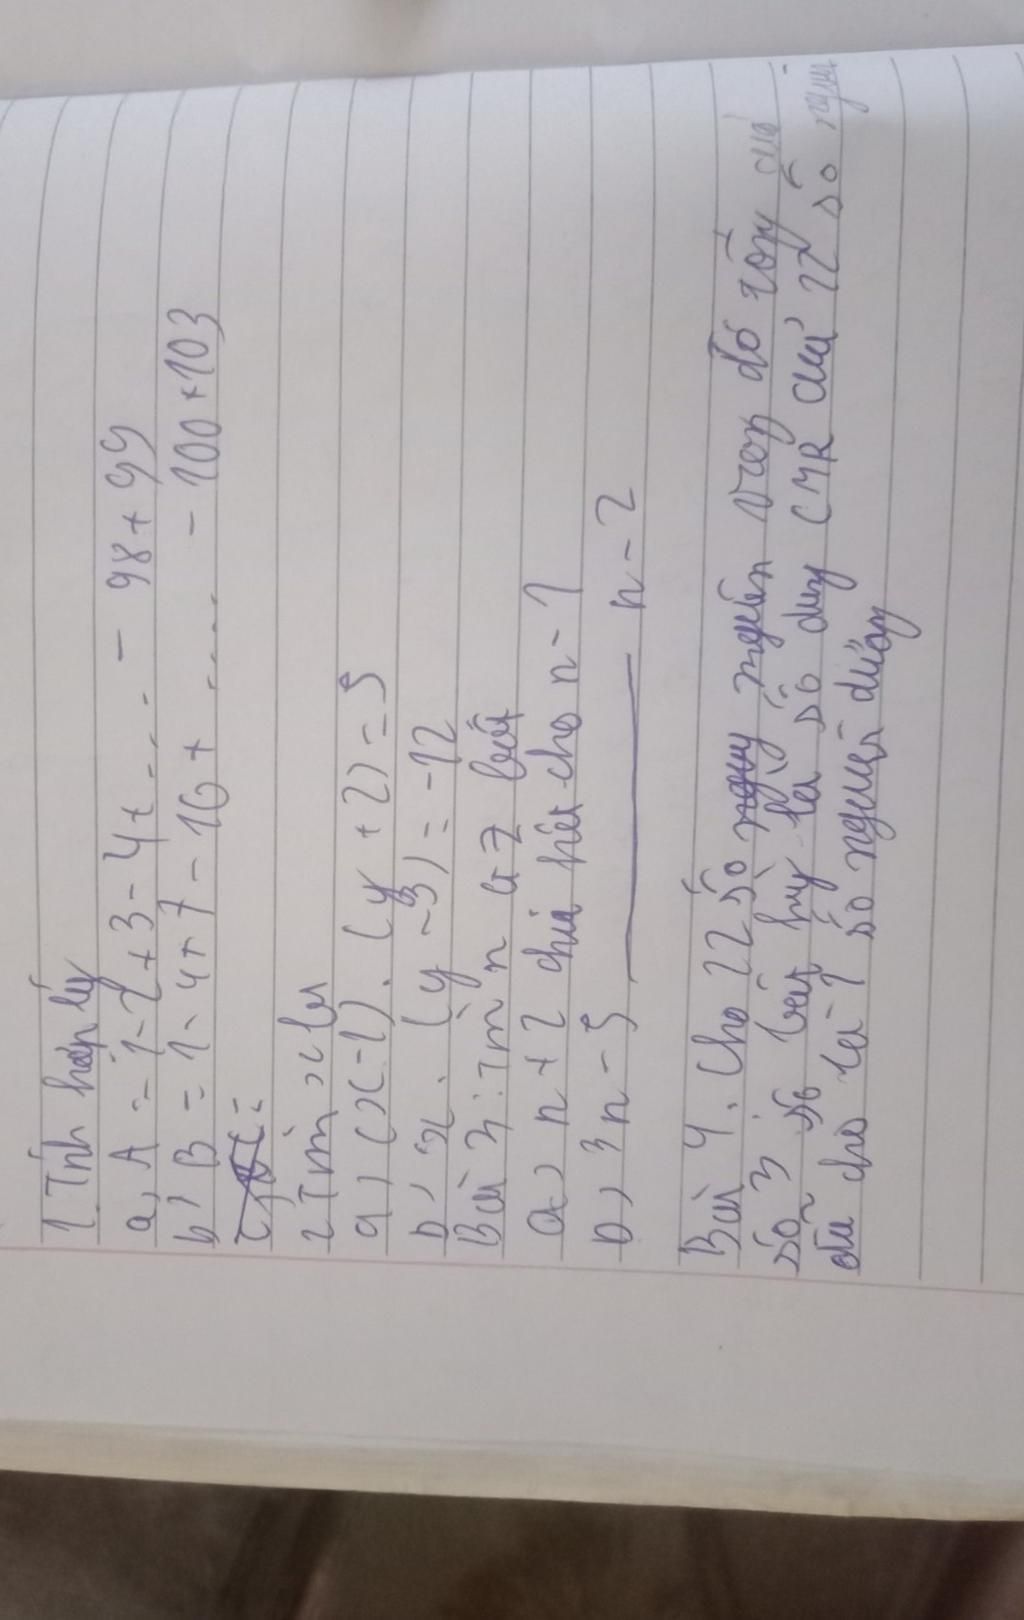 1 Tính hợp lý
a, A = 1-2+3-4+ ... - 98+99
b, B = 1-4+7-10+ .... - 100+103
2 Tìm x
a) (x-1).(y+2)=5
b, x.(y-3)=-12
Bài 3: Tìm n ∈ Z biết
a) n+2 chia hết cho n-1
b) 3n-5 ——— n-2
Bài 4. Cho 22 số nguyên trong đó tổng của
số 3 số bất kỳ là số dương CMR của 22 số nguyên
đã cho là 1 số nguyên dương